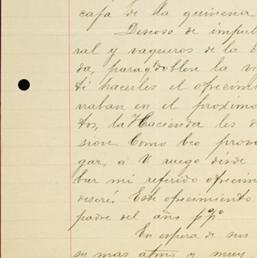 caja de la quincena
Deseoso de impul
ral y vaqueros de la
da, para doblen la
ti hacerles el ofrecimi
raban en el proximo
tos, la Hacienda les
sion. Como
gar, a V ruego
bar mi referido ofrecim
deseri. Este ofrecimiento
padre del año ppº
En espera de sus
su mas atmo y muy